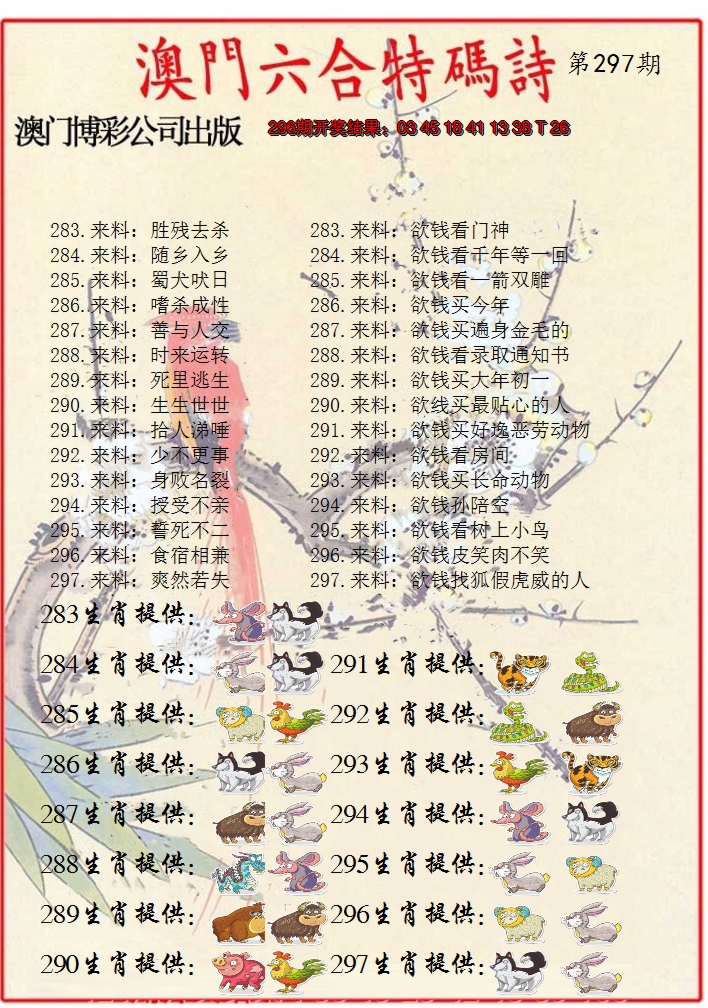 澳門六合特碼詩 第297期
澳门博彩公司出版 296期开奖结果：03 45 18 41 13 38 T 26
283.来料：胜残去杀 283.来料：欲钱看门神
284.来料：随乡入乡 284.来料：欲钱看千年等一回
285.来料：蜀犬吠日 285.来料：欲钱看一箭双雕
286.来料：嗜杀成性 286.来料：欲钱买今年
287.来料：善与人交 287.来料：欲钱买遍身金毛的
288.来料：时来运转 288.来料：欲钱看录取通知书
289.来料：死里逃生 289.来料：欲钱买大年初一
290.来料：生生世世 290.来料：欲线买最贴心的人
291.来料：拾人涕唾 291.来料：欲钱买好逸恶劳动物
292.来料：少不更事 292.来料：欲钱看房间
293.来料：身败名裂 293.来料：欲钱买长命动物
294.来料：授受不亲 294.来料：欲钱孙陪空
295.来料：誓死不二 295.来料：欲钱看树上小鸟
296.来料：食宿相兼 296.来料：欲钱皮笑肉不笑
297.来料：爽然若失 297.来料：欲钱找狐假虎威的人
283生肖提供：
284生肖提供： 291生肖提供：
285生肖提供： 292生肖提供：
286生肖提供： 293生肖提供：
287生肖提供： 294生肖提供：
288生肖提供： 295生肖提供：
289生肖提供： 296生肖提供：
290生肖提供： 297生肖提供：